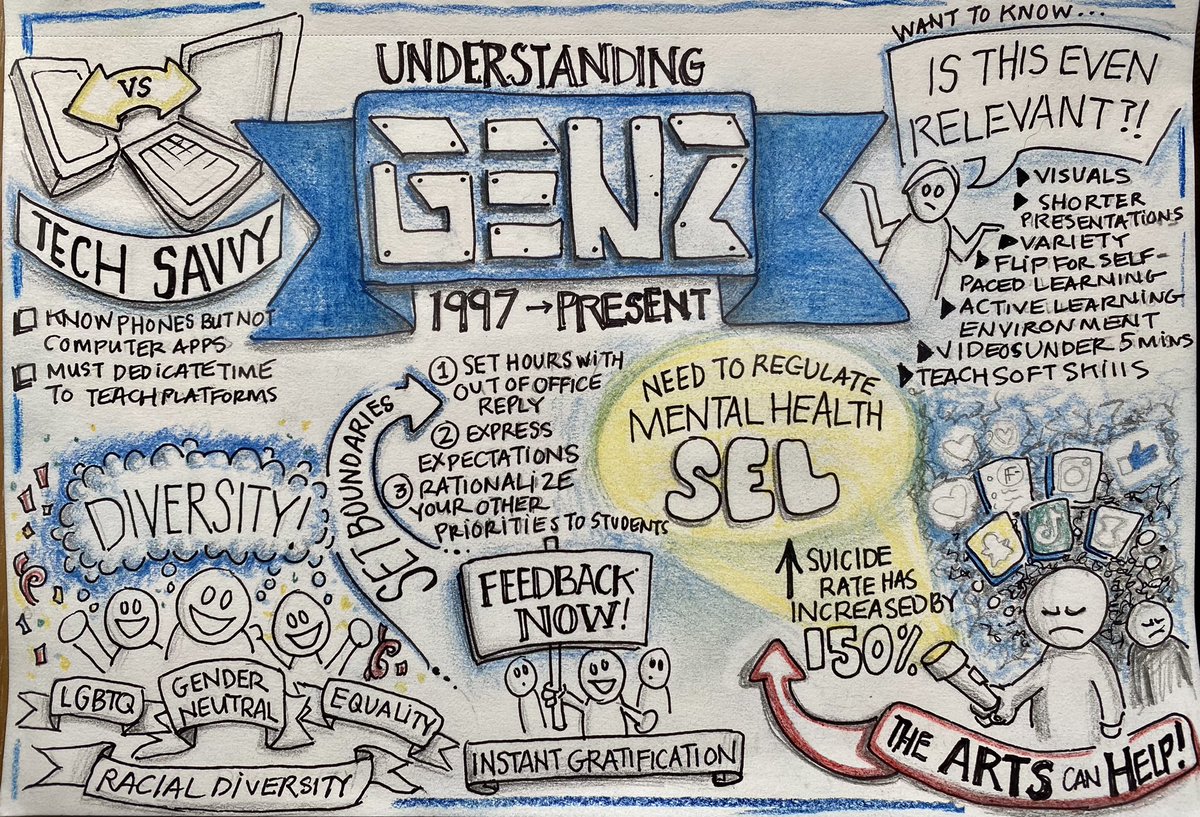 UNDERSTANDING
GENZ
1997 → PRESENT
VS
TECH SAVVY
KNOW PHONES BUT NOT
COMPUTER APPS
MUST DEDICATE TIME
TO TEACH PLATFORMS
WANT TO KNOW...
IS THIS EVEN
RELEVANT?!
VISUALS
SHORTER
PRESENTATIONS
VARIETY
FLIP FOR SELF-
PACED LEARNING
ACTIVE LEARNING
ENVIRONMENT
VIDEOS UNDER 5 MINS
TEACH SOFT SKIllS
SET BOUNDARIES
1 SET HOURS WITH
OUT OF OFFICE
REPLY
2 EXPRESS
EXPECTATIONS
3 RATIONALIZE
YOUR OTHER
PRIORITIES TO STUDENTS
NEED TO REGULATE
MENTAL HEALTH
SEL
DIVERSITY!
LGBTQ
GENDER
NEUTRAL
EQUALITY
RACIAL DIVERSITY
FEEDBACK
NOW!
INSTANT GRATIFICATION
SUICIDE
RATE HAS
INCREASED BY
150%
F
THE ARTS CAN HELP!